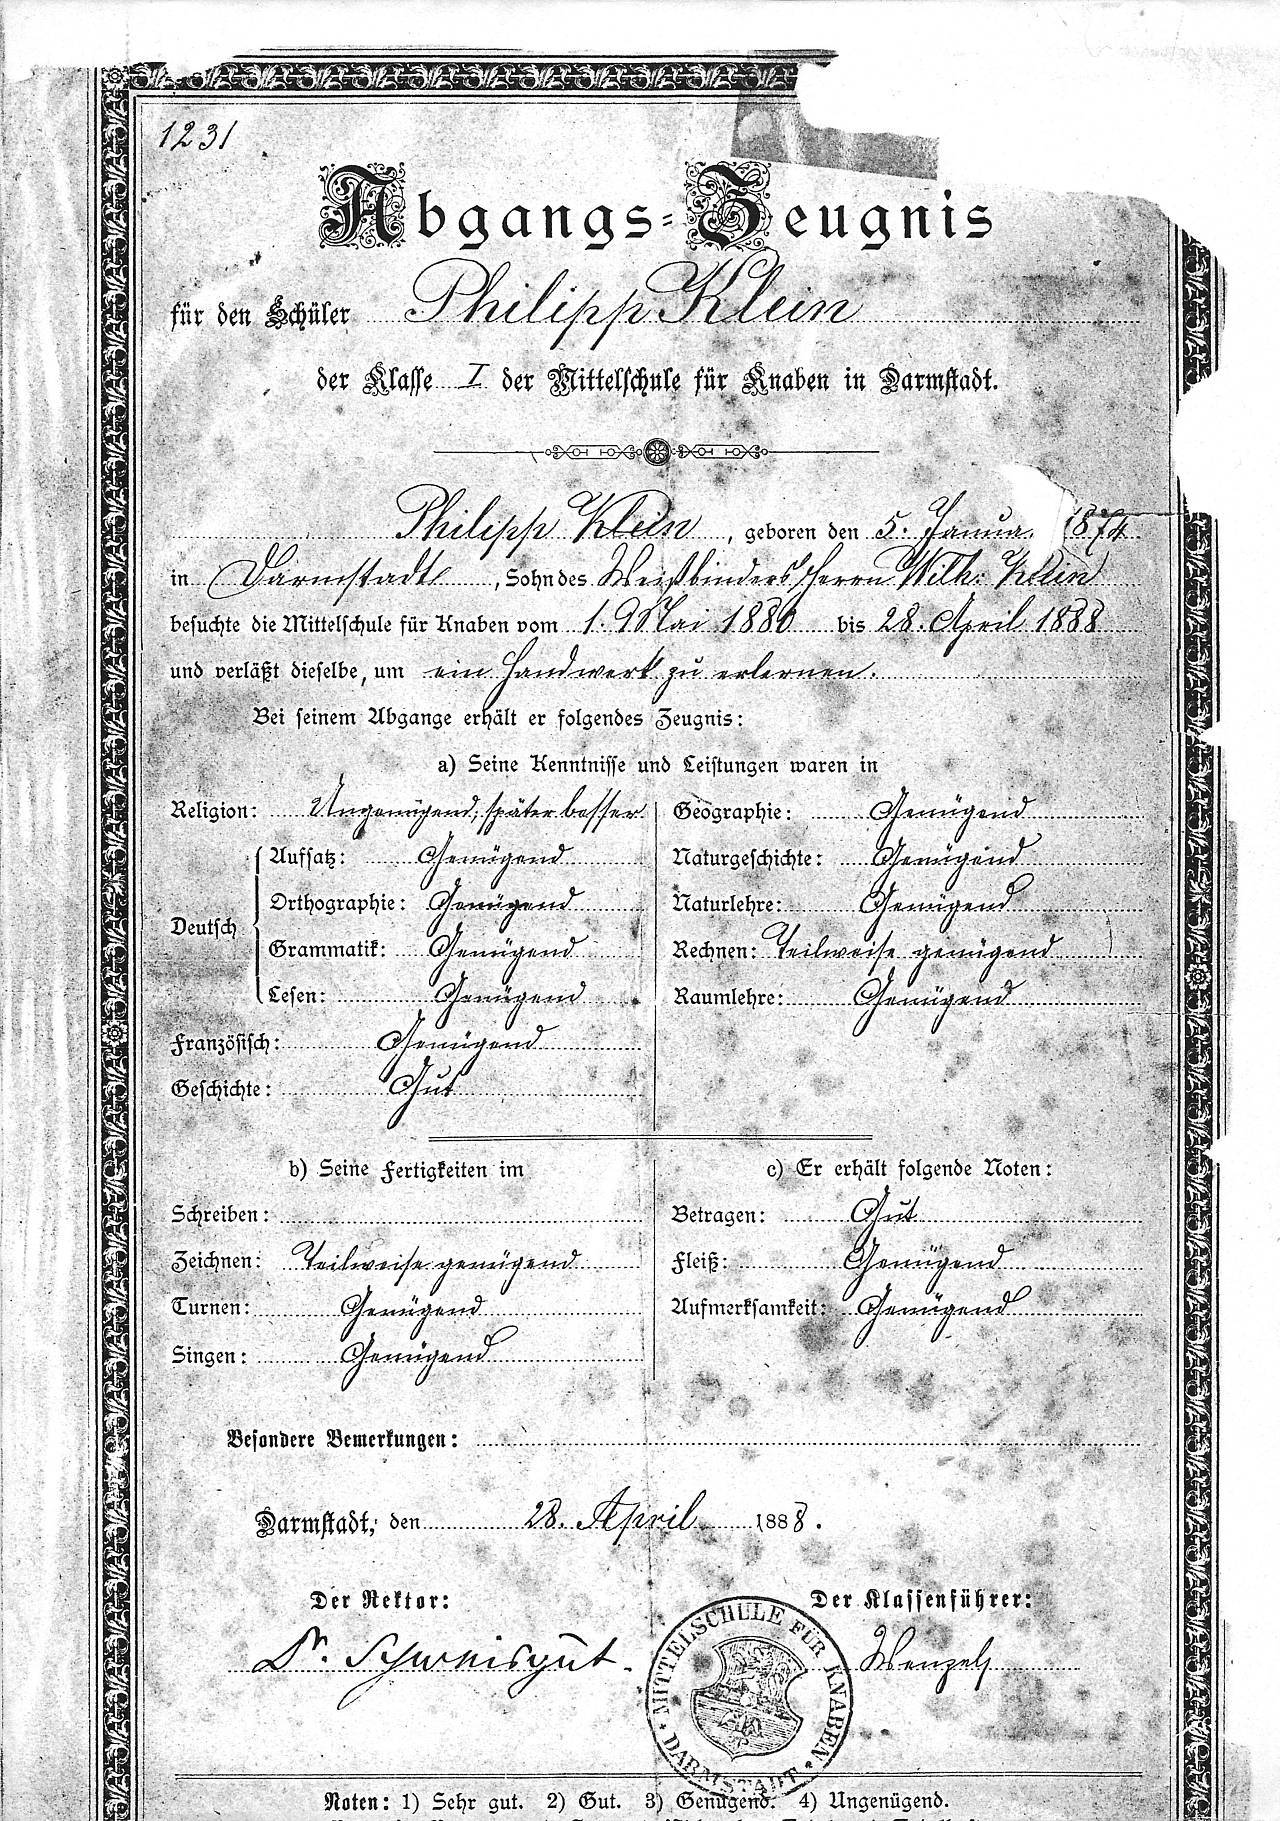 1231
Abgangs-Zeugnis
für den Schüler Philipp Klein
der Klasse I der Mittelschule für Knaben in Darmstadt.
Philipp Klein, geboren den 5. Janua 1874
in Darmstadt, Sohn des Weißbinders Herrn Wilh: Klein
besuchte die Mittelschule für Knaben vom 1. Mai 1880 bis 28. April 1888
und verläßt dieselbe, um ein Handwerk zu erlernen.
Bei seinem Abgange erhält er folgendes Zeugnis:
a) Seine Kenntnisse und Leistungen waren in
Religion: Ungenügend, später besser
Deutsch
Aufsatz: Genügend
Orthographie: Genügend
Grammatik: Genügend
Lesen: Genügend
Französisch: Genügend
Geschichte: Gut
Geographie: Genügend
Naturgeschichte: Genügend
Naturlehre: Genügend
Rechnen: Teilweise genügend
Raumlehre: Genügend
b) Seine Fertigkeiten im
Schreiben:
Zeichnen: Teilweise genügend
Turnen: Genügend
Singen: Genügend
c) Er erhält folgende Noten:
Betragen: Gut
Fleiß: Genügend
Aufmerksamkeit: Genügend
Besondere Bemerkungen:
Darmstadt, den 28. April 1888.
Der Rektor:
Dr. Schweisgut.
Der Klassenführer:
Wenzel
MITTELSCHULE FÜR KNABEN
DARMSTADT
Noten: 1) Sehr gut. 2) Gut. 3) Genügend. 4) Ungenügend.